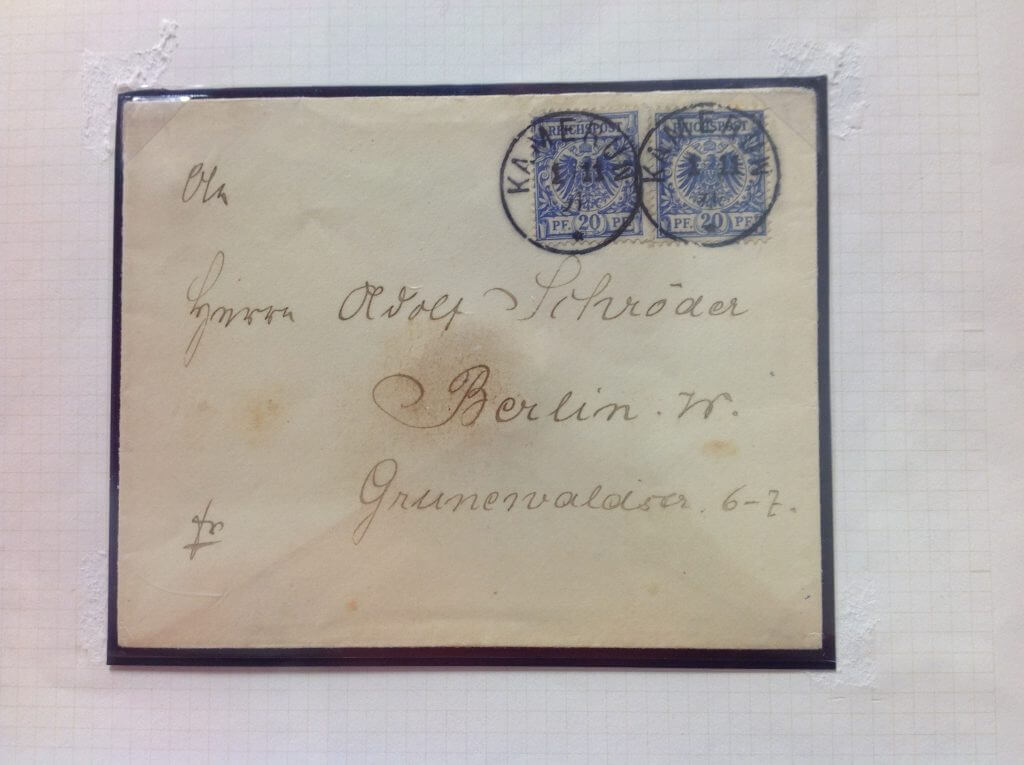 KAMERUN KAMERUN
REICHSPOST REICHSPOST
11 11
PF. 20 PF. PF. 20 PF.
An
Herrn Adolf Schröder
Berlin. W.
Grunewaldstr. 6-7.
fr